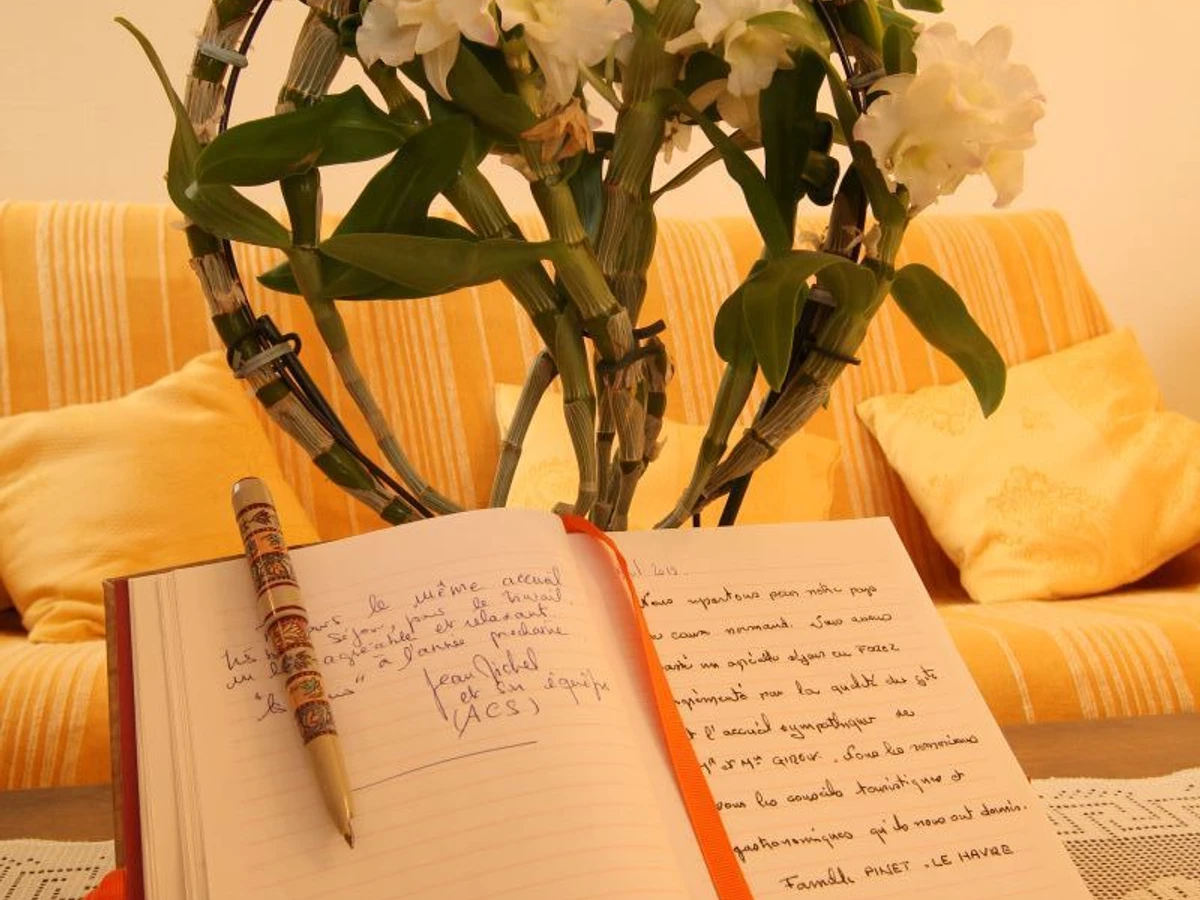 le même accueil
séjour, pas le travail.
agréable et relaxant.
à l'année prochaine
Jean Michel
et son équipe
(ACS)
2012.
Nous repartons pour notre pays
normand. Nous avons
un agréable séjour en FOREZ
par la qualité du gîte
l'accueil sympathique de
et Mme GIROUX. Nous les remercions
pour les conseils touristiques et
gastronomiques qu'ils nous ont donnés.
Famille PINET - LE HAVRE